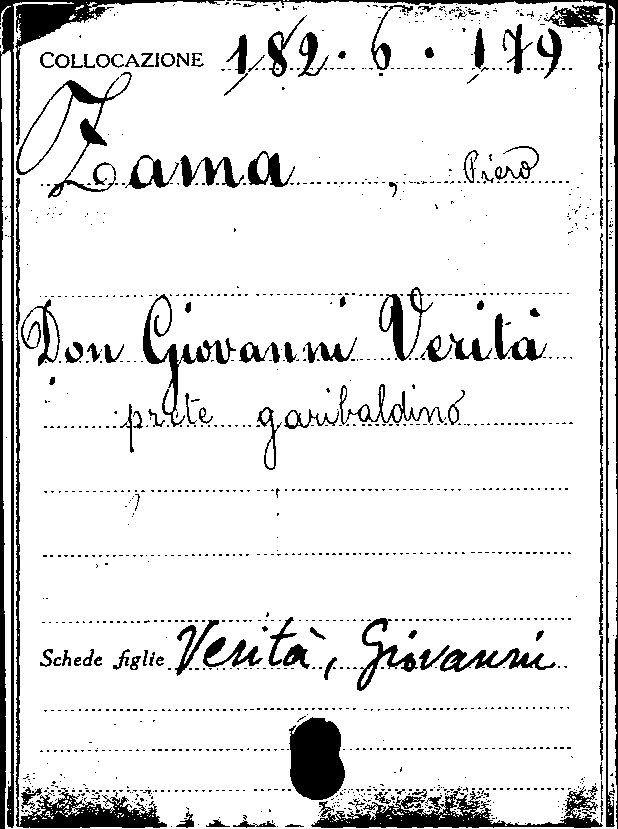 COLLOCAZIONE 182 · 6 · 179
Zama , Piero
Don Giovanni Verità
prete garibaldino
Schede figlie Verità, Giovanni